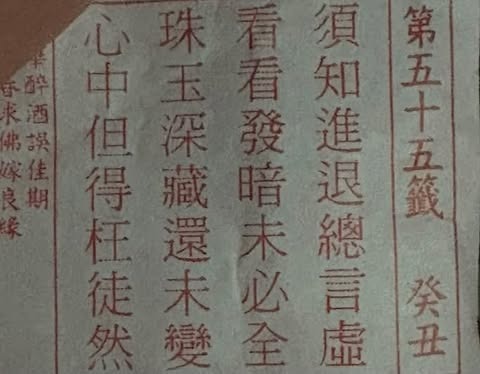 第五十五籤 癸丑
須知進退總言虛
看看發暗未必全
珠玉深藏還未變
心中但得枉徒然
醉酒誤佳期
求佛嫁良緣